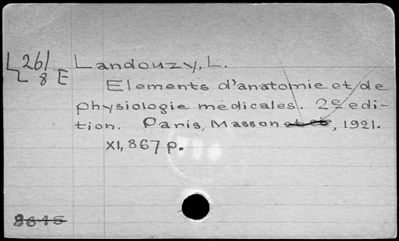 L261 Landouzy, L.
L8E
Élements d'anatomie et de
physiologie médicales. 2e edi-
tion. Paris, Masson et cie, 1921.
XI, 867 p.
8615